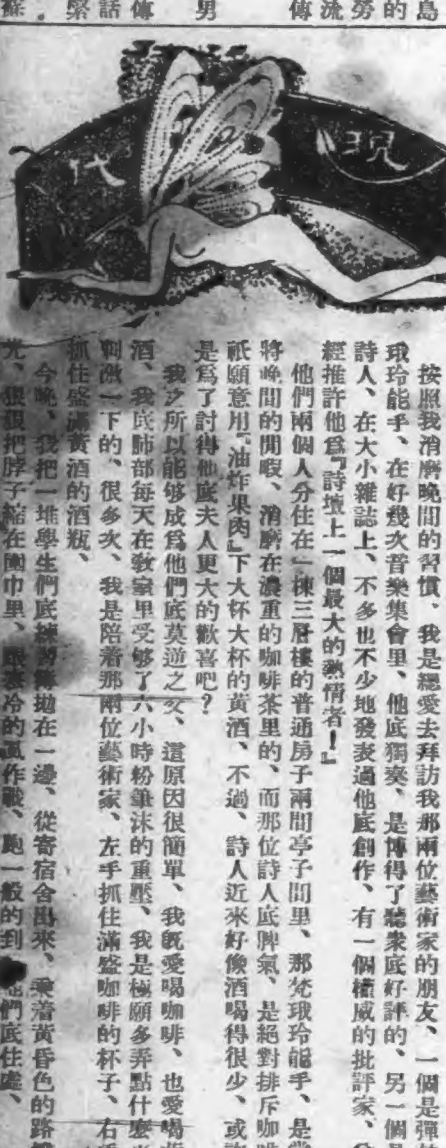 島
的
勞
流
傳
男
傳
話
緊
蘇
現代
按照我消磨晚間的習慣、我是總愛去拜訪我那兩位藝術家的朋友、一個是彈
珴玲能手、在好幾次音樂集會里、他底獨奏、是博得了聽衆底好評的、另一個
詩人、在大小雜誌上、不多也不少地發表過他底創作、有一個權威的批評家、
經推許他爲『詩壇上一個最大的熱情者！』
他們兩個人分住在一棟三層樓的普通房子兩間亭子間里、那梵珴玲能手、是常
將晚間的閒暇、消磨在濃重的咖啡茶里的、而那位詩人底脾氣、是絕對排斥咖啡
祇願意用『油炸果肉』下大杯大杯的黃酒、不過、詩人近來好像酒喝得很少、或許
是爲了討得他底夫人更大的歡喜吧？
我之所以能够成爲他們底莫逆之交、這原因很簡單、我旣愛喝咖啡、也愛喝黃
酒、我底肺部每天在敎室里受够了六小時粉筆沫的重壓、我是極願多弄點什麼
刺激一下的、很多次、我是陪着那兩位藝術家、左手抓住滿盛咖啡的杯子、右手
抓住盛滿黃酒的酒瓶、
今晚、我把一堆學生們底練習簿拋在一邊、從寄宿舍出來、乘着黃昏色的路
光、狠狠把脖子縮在圍巾里、跟寒冷的風作戰、跑一般的到他們底住處、